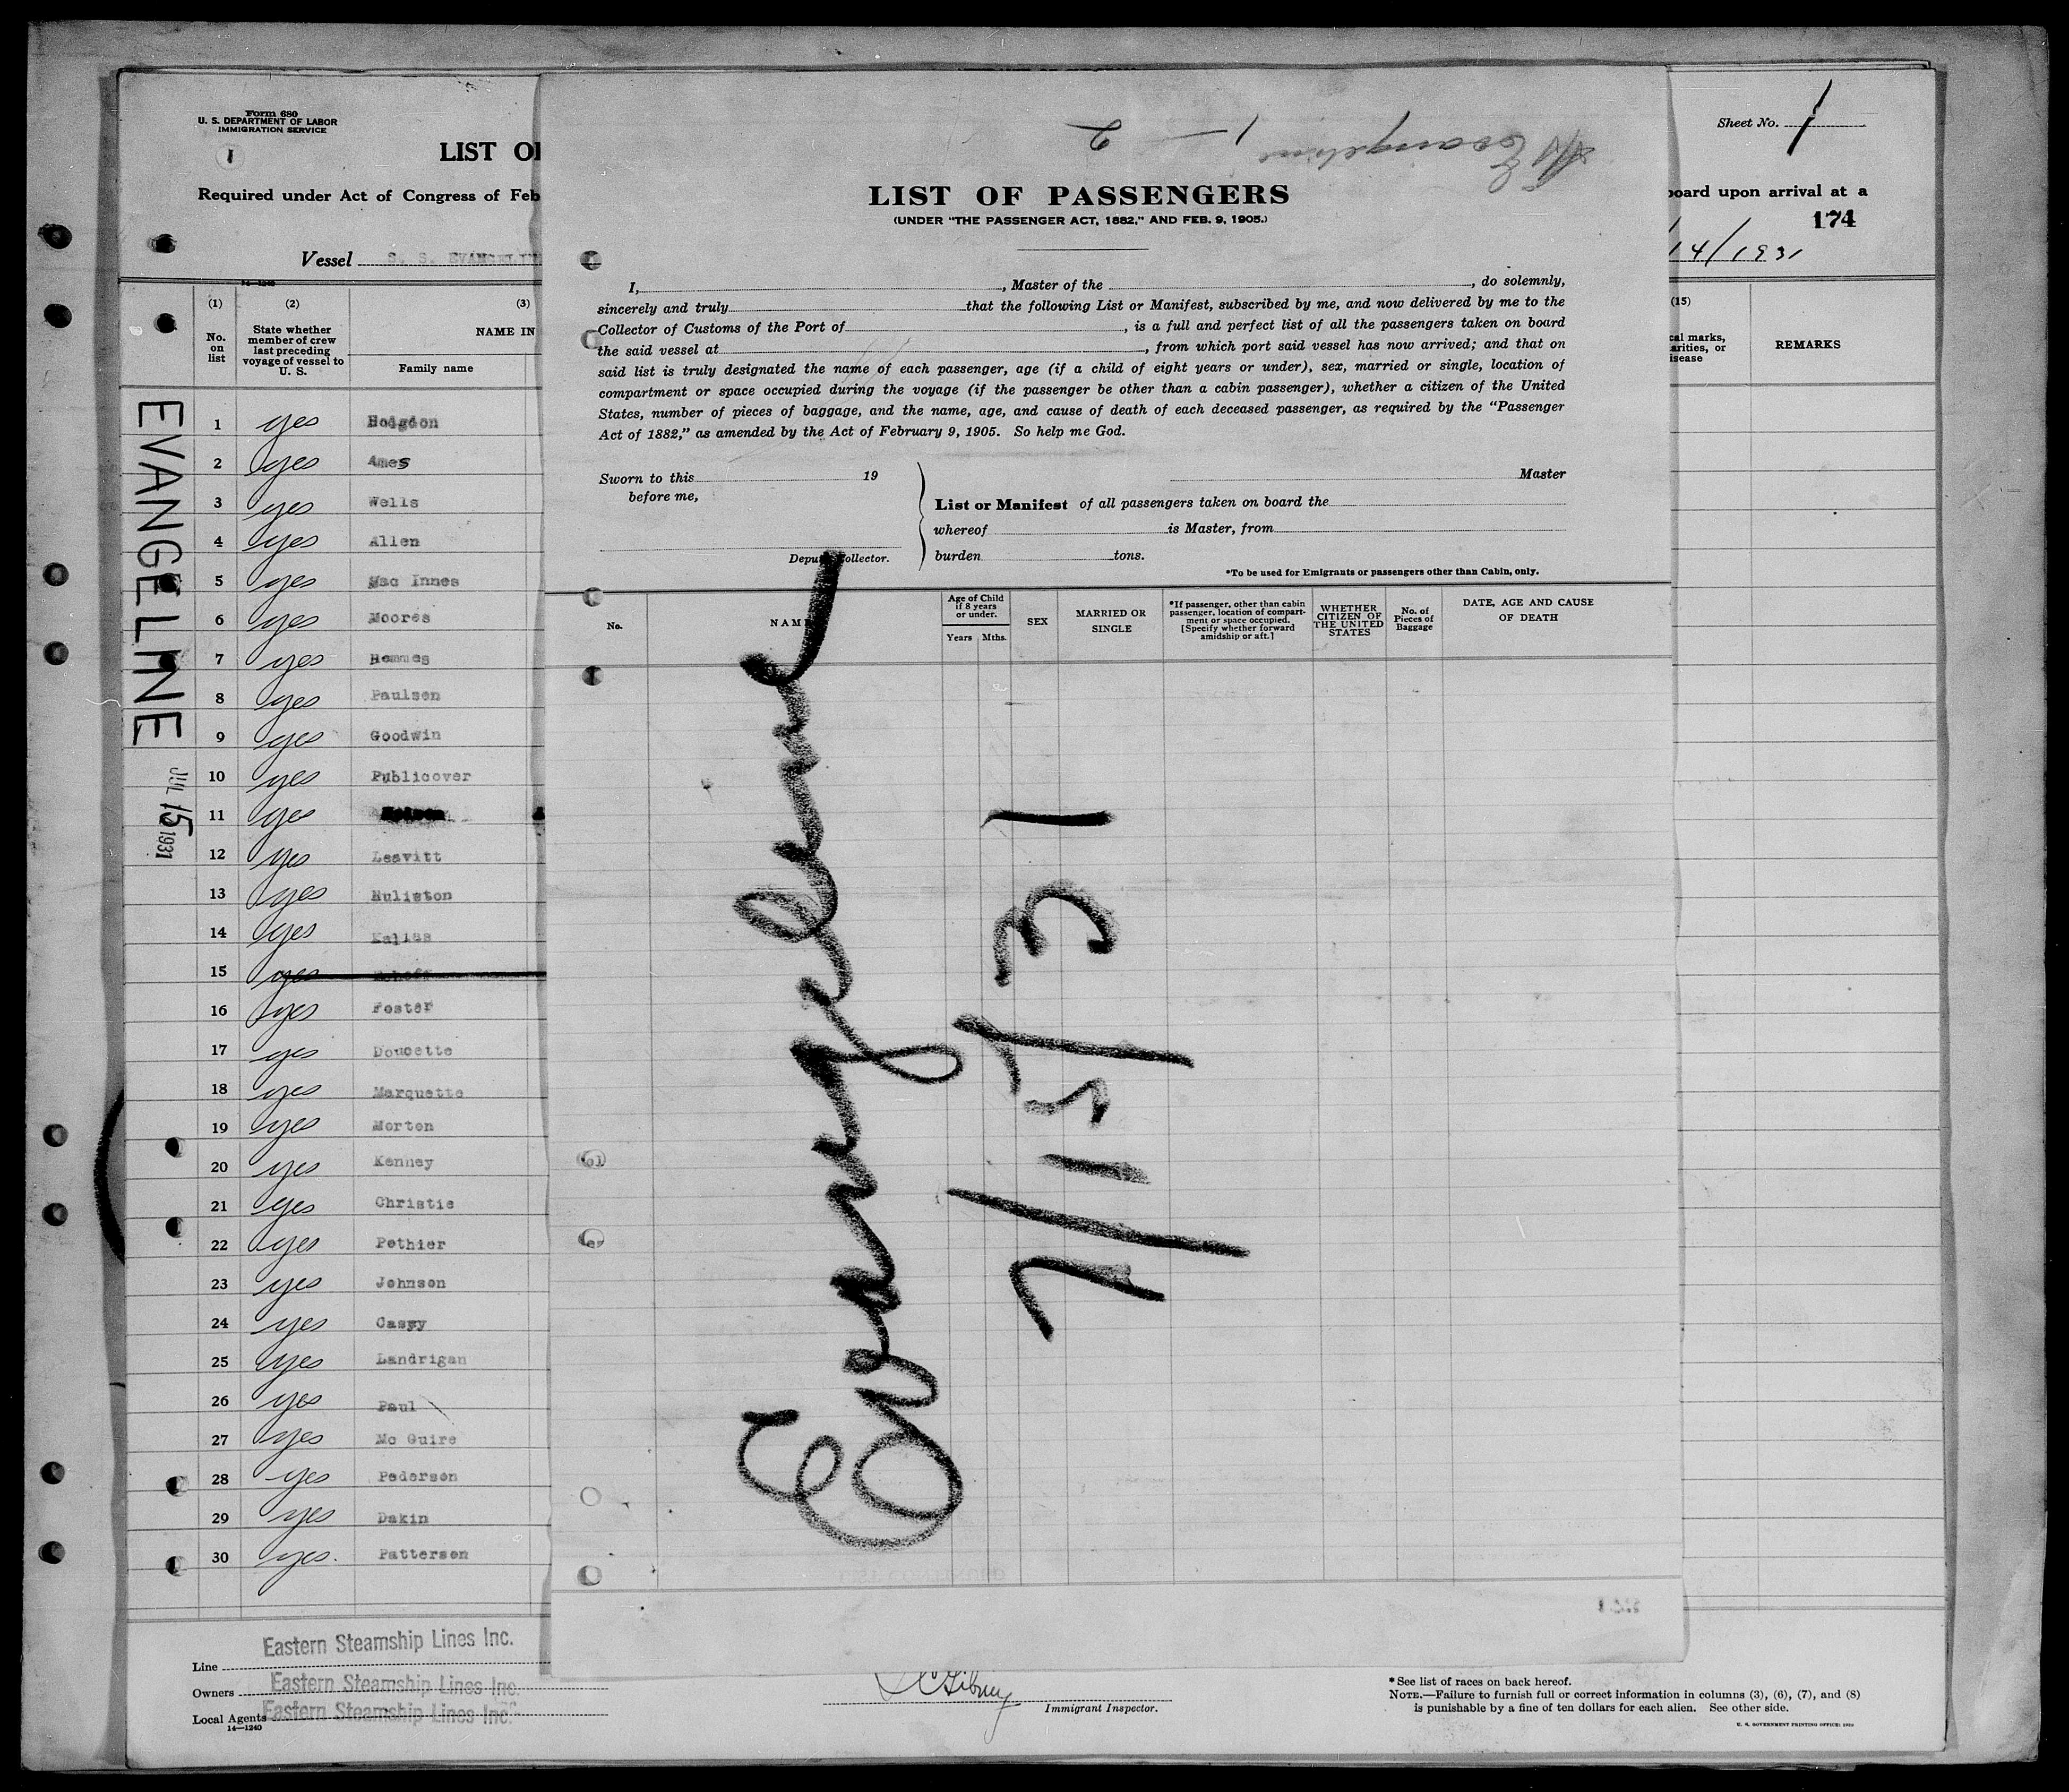 Form 680
U. S. DEPARTMENT OF LABOR
IMMIGRATION SERVICE
1
LIST O
Required under Act of Congress of Feb
Vessel S. S. EVANGELIN
(1) (2) (3)
No. on list
State whether member of crew last preceding voyage of vessel to U. S.
NAME IN
Family name
EVANGELINE
JUL 15 1931
1 yes Hodgdon
2 yes Ames
3 yes Wells
4 yes Allen
5 yes Mac Innes
6 yes Moores
7 yes Hemmes
8 yes Paulsen
9 yes Goodwin
10 yes Publicover
11 yes
12 yes Leavitt
13 yes Huliston
14 yes Kallas
15 yes
16 yes Foster
17 yes Doucette
18 yes Marquette
19 yes Morton
20 yes Kenney
21 yes Christie
22 yes Pothier
23 yes Johnson
24 yes Casey
25 yes Landrigan
26 yes Paul
27 yes Mc Guire
28 yes Pederson
29 yes Dakin
30 yes. Patterson
Line Eastern Steamship Lines Inc.
Owners Eastern Steamship Lines Inc.
Local Agents Eastern Steamship Lines Inc.
14—1240
Evangeline
1 — 2
LIST OF PASSENGERS
(UNDER "THE PASSENGER ACT, 1882," AND FEB. 9, 1905.)
I, , Master of the , do solemnly,
sincerely and truly that the following List or Manifest, subscribed by me, and now delivered by me to the
Collector of Customs of the Port of , is a full and perfect list of all the passengers taken on board
the said vessel at , from which port said vessel has now arrived; and that on
said list is truly designated the name of each passenger, age (if a child of eight years or under), sex, married or single, location of
compartment or space occupied during the voyage (if the passenger be other than a cabin passenger), whether a citizen of the United
States, number of pieces of baggage, and the name, age, and cause of death of each deceased passenger, as required by the "Passenger
Act of 1882," as amended by the Act of February 9, 1905. So help me God.
Sworn to this 19
before me,
Deputy Collector.
Master
List or Manifest of all passengers taken on board the
whereof is Master, from
burden tons.
*To be used for Emigrants or passengers other than Cabin, only.
No.
NAME
Age of Child if 8 years or under.
Years Mths.
SEX
MARRIED OR SINGLE
*If passenger, other than cabin passenger, location of compartment or space occupied. [Specify whether forward amidship or aft.]
WHETHER CITIZEN OF THE UNITED STATES
No. of Pieces of Baggage
DATE, AGE AND CAUSE OF DEATH
Evangeline
7/15/31
Sheet No. 1
board upon arrival at a
174
14/1931
(15)
cal marks,
arities, or
isease
REMARKS
Immigrant Inspector.
* See list of races on back hereof.
NOTE.—Failure to furnish full or correct information in columns (3), (6), (7), and (8)
is punishable by a fine of ten dollars for each alien. See other side.
U. S. GOVERNMENT PRINTING OFFICE: 1930